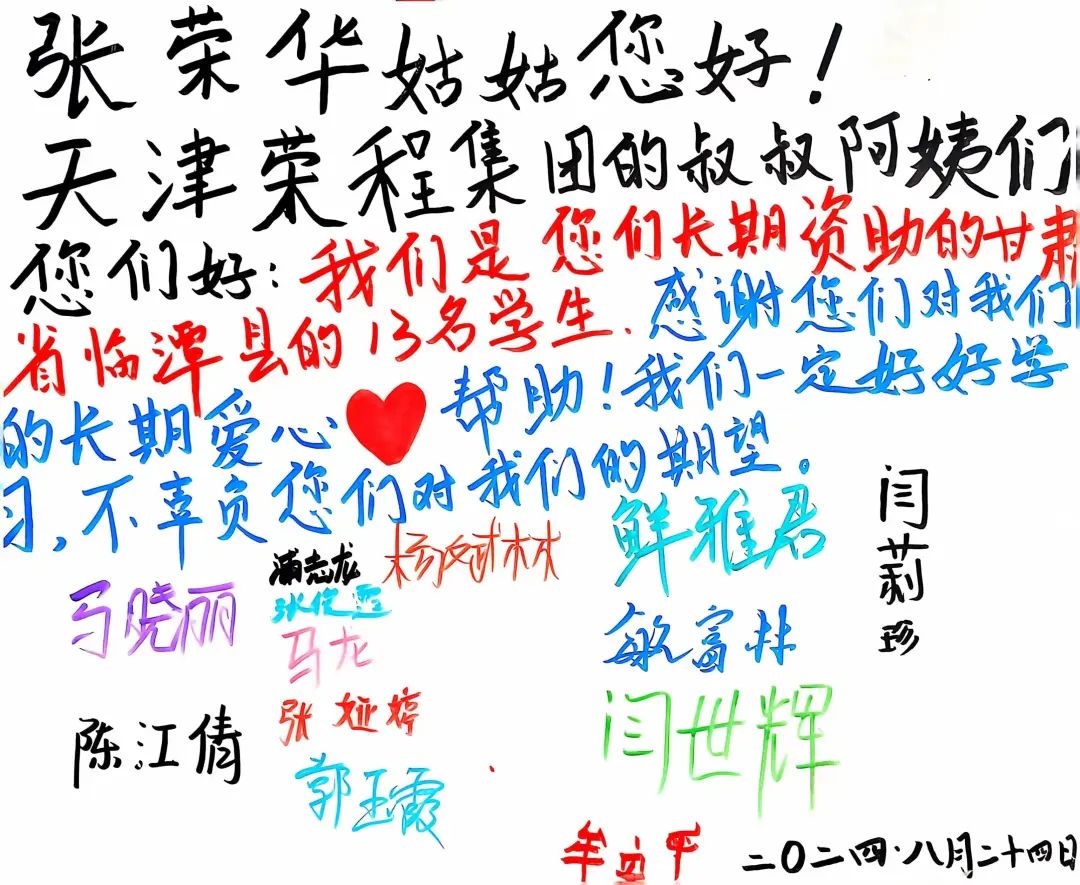 张荣华姑姑您好！
天津荣程集团的叔叔阿姨们
您们好：我们是您们长期资助的甘肃
省临潭县的13名学生.感谢您们对我们
的长期爱心❤帮助！我们一定好好学
习,不辜负您们对我们的期望。
闫莉珍
鲜雅君
马晓丽
张俊霞
马龙
敏富林
陈江倩
张娅婷
闫世辉
郭玉霞
二〇二四·八月二十四日